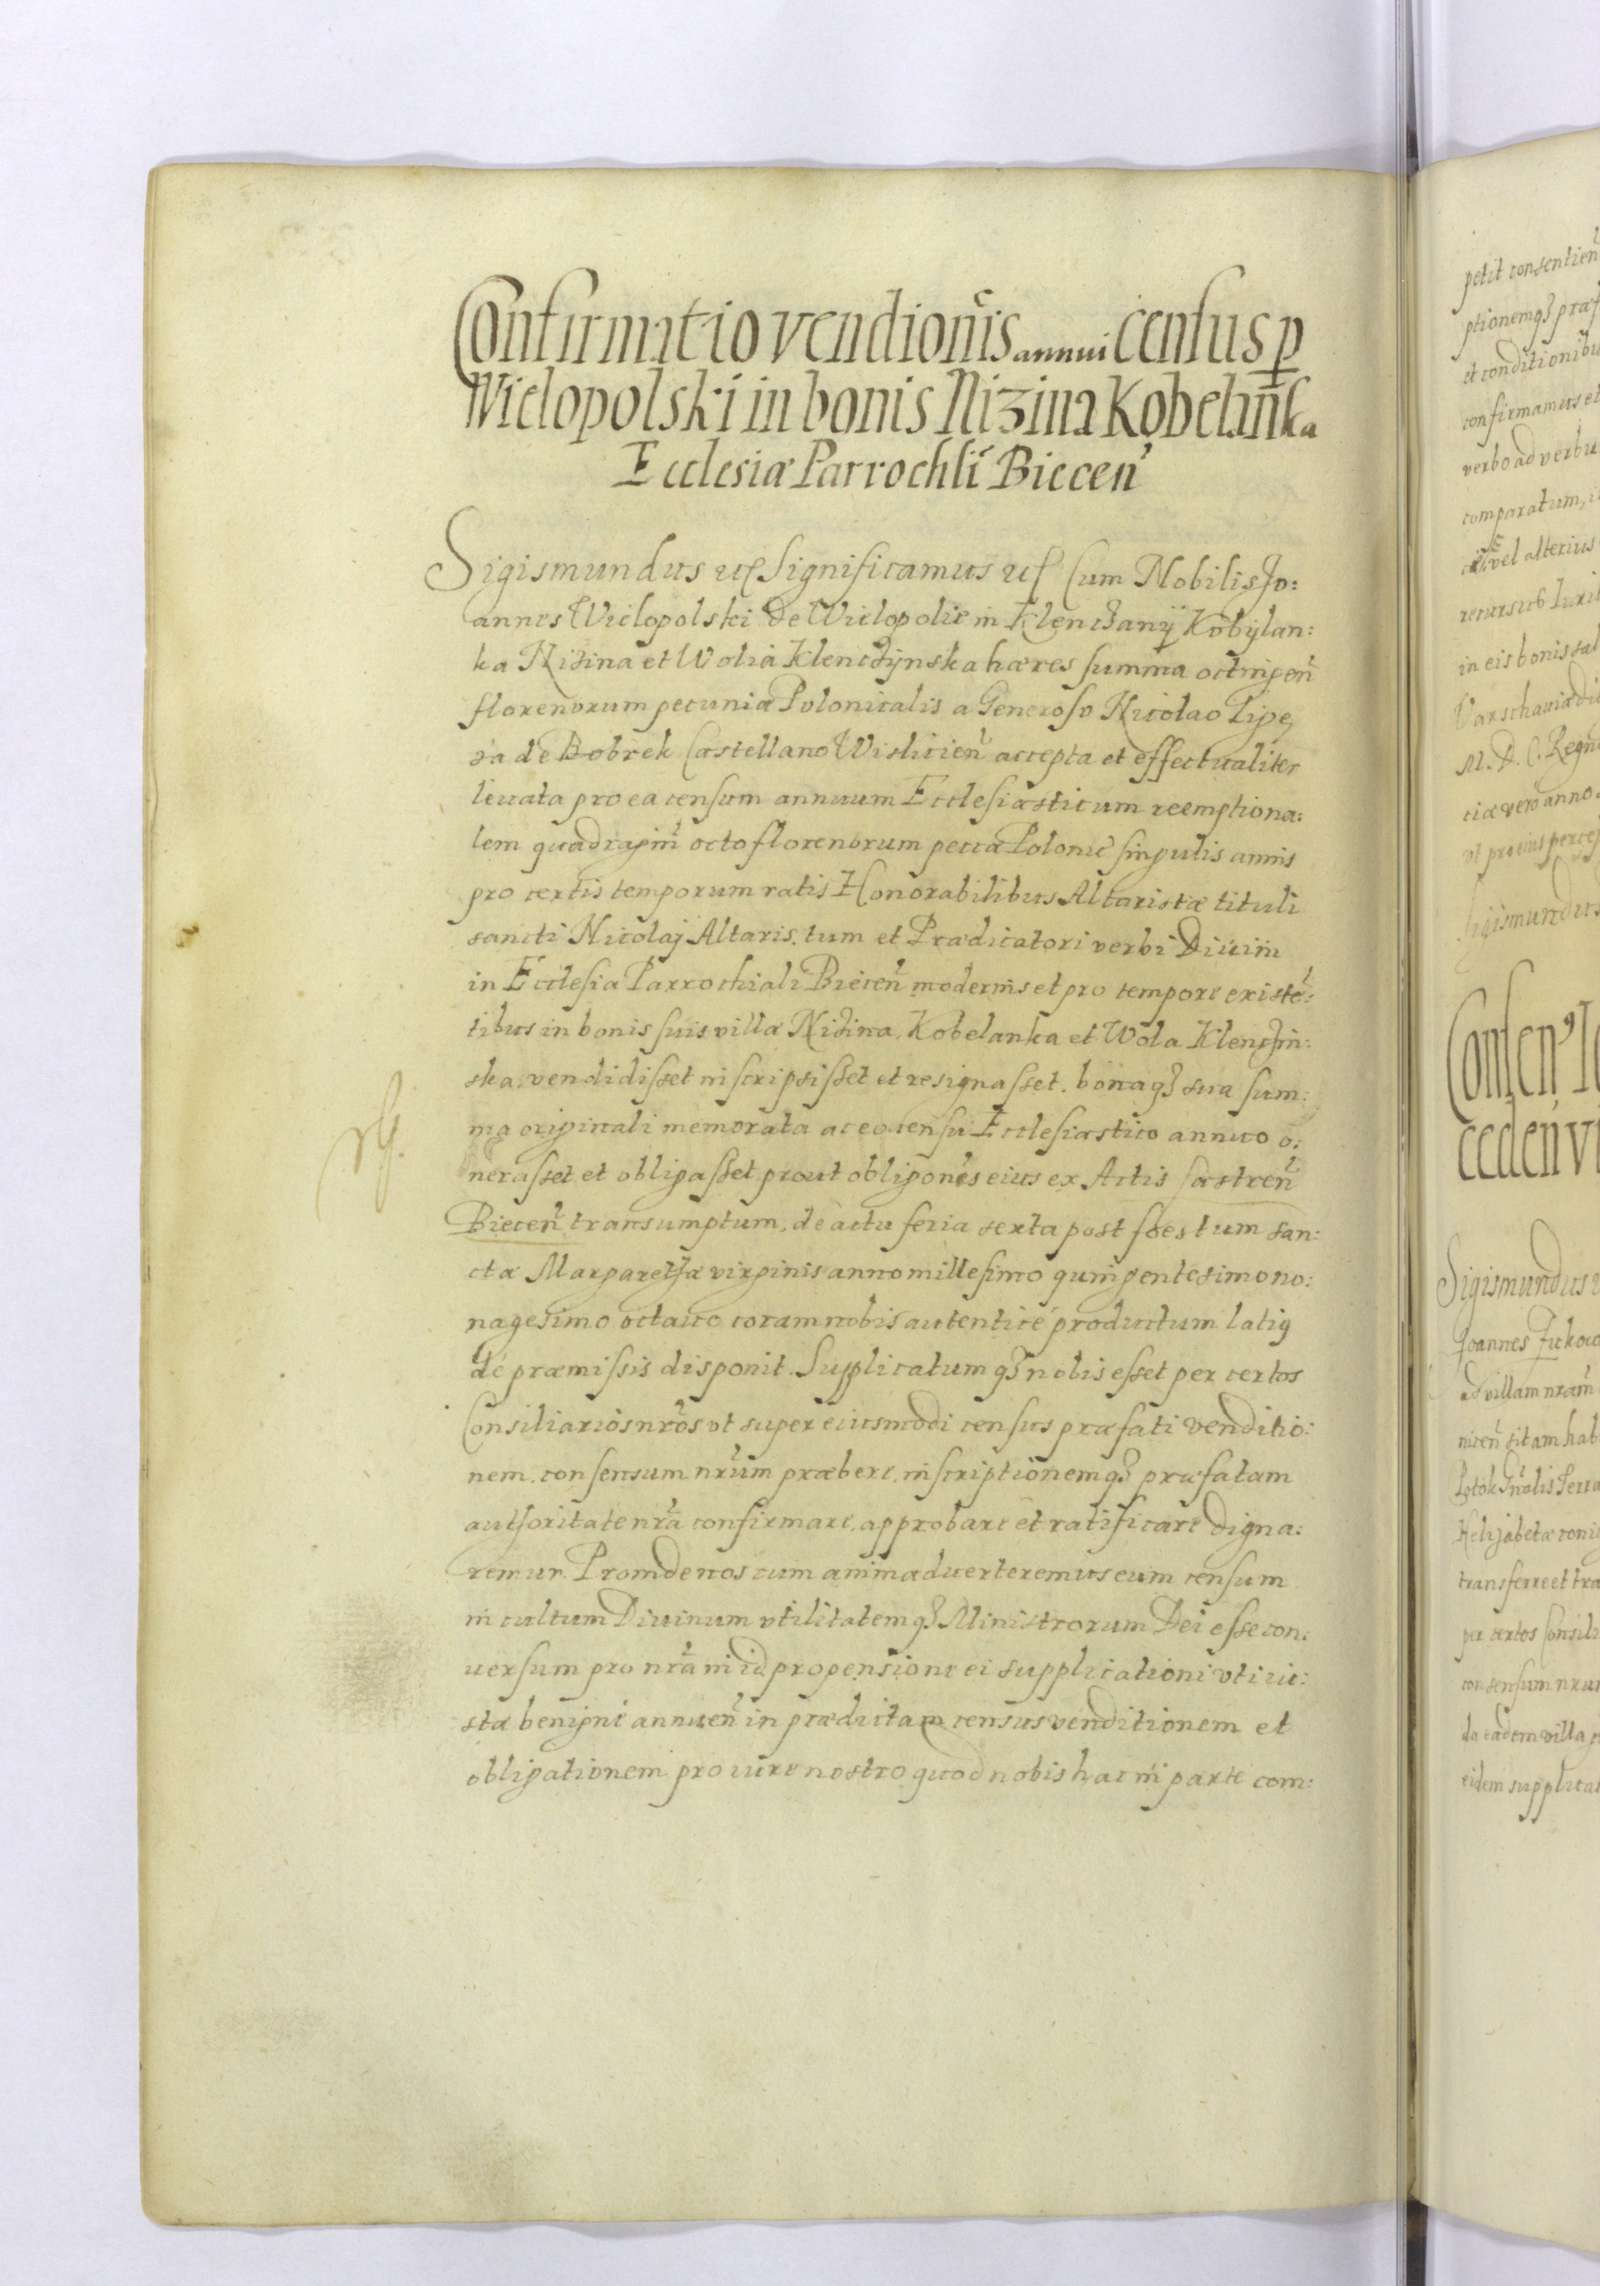 Confirmatio vendionis annui census p
Wielopolski in bonis Nizina Kobelanska
Ecclesiæ Parrochli Biecen
Sigismundus etc Significamus etc Cum Nobilis Jo:
annes Wielopolski de Wielopolie in Klenczany Kobylan:
ka Nizina et Wolia Klenczynska hæres summa octingen
florenorum pecuniæ Polonicalis a Generoso Nicolao Lige,
za de Bobrek Castellano Wislicien accepta et effectualiter
leuata pro ea censum annuum Ecclesiasticum reemptiona:
lem quadragin octo florenorum peccæ Polonic singulis annis
pro certis temporum ratis Honorabilibus Altaristæ tituli
sancti Nicolaj Altaris, tum et Prædicatori verbi Diuini
in Ecclesia Parrochiali Biecen modernis et pro tempore existe:
tibus in bonis suis villæ Nizina, Kobelanka et Wola Klenczin:
ska, vendidisset inscripsisset et resignasset, bonaq3 sua sum:
ma originali memorata ac eo censu Ecclesiastico annuo o:
nerasset et obligasset prout obligonis eius ex Actis Castren
Biecen transumptum, de actu feria sexta post festum san:
ctæ Margarethæ virginis anno millesimo quingentesimo no:
nagesimo octauo coram nobis autenticé productum latig
de præmissis disponit. Supplicatumq3 nobis esset per certos
Consiliarios nros vt super eiusmodi census præfati venditio:
nem, consensum nrum præbere, inscriptionemq3 præfatam
authoritate nra confirmare, approbare et ratificare digna:
remur. Proinde nos cum animaduerteremus eum censum
in cultum Diuinum vtilitatemq3 Ministrorum Dei esse con:
uersum pro nra in id propensione ei supplicationi vti iu:
stæ benigne annuen in prædictam census venditionem et
obligationem pro iure nostro quod nobis hac in parte com:
petit consentien
et conditionibu
confirmamus et
verbo ad verbu
comparatum,
vel alterius
in eis bonis sal
Varschauiæ die
M. D. C. Regn
ciæ vero anno
Sigismundus
Consen
ceden vi
Sigismundus
Joannes Zukow
ad villam nram
nicen sitam hab
Helizabetæ coni
transferre et tra
per certos Consili
consensum nrum
da eadem villa
eidem supplicat